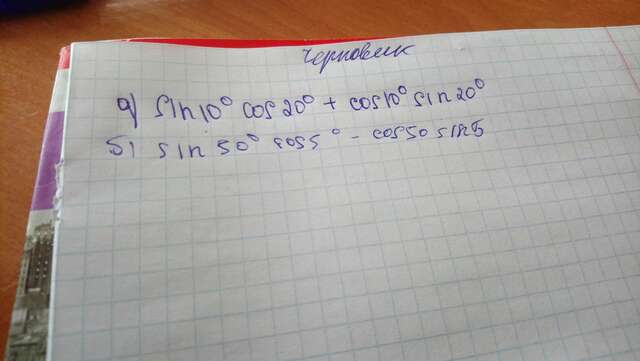 Черновик
а) sin10° cos20° + cos10° sin20°
б) sin 50° cos5° - cos50 sin5